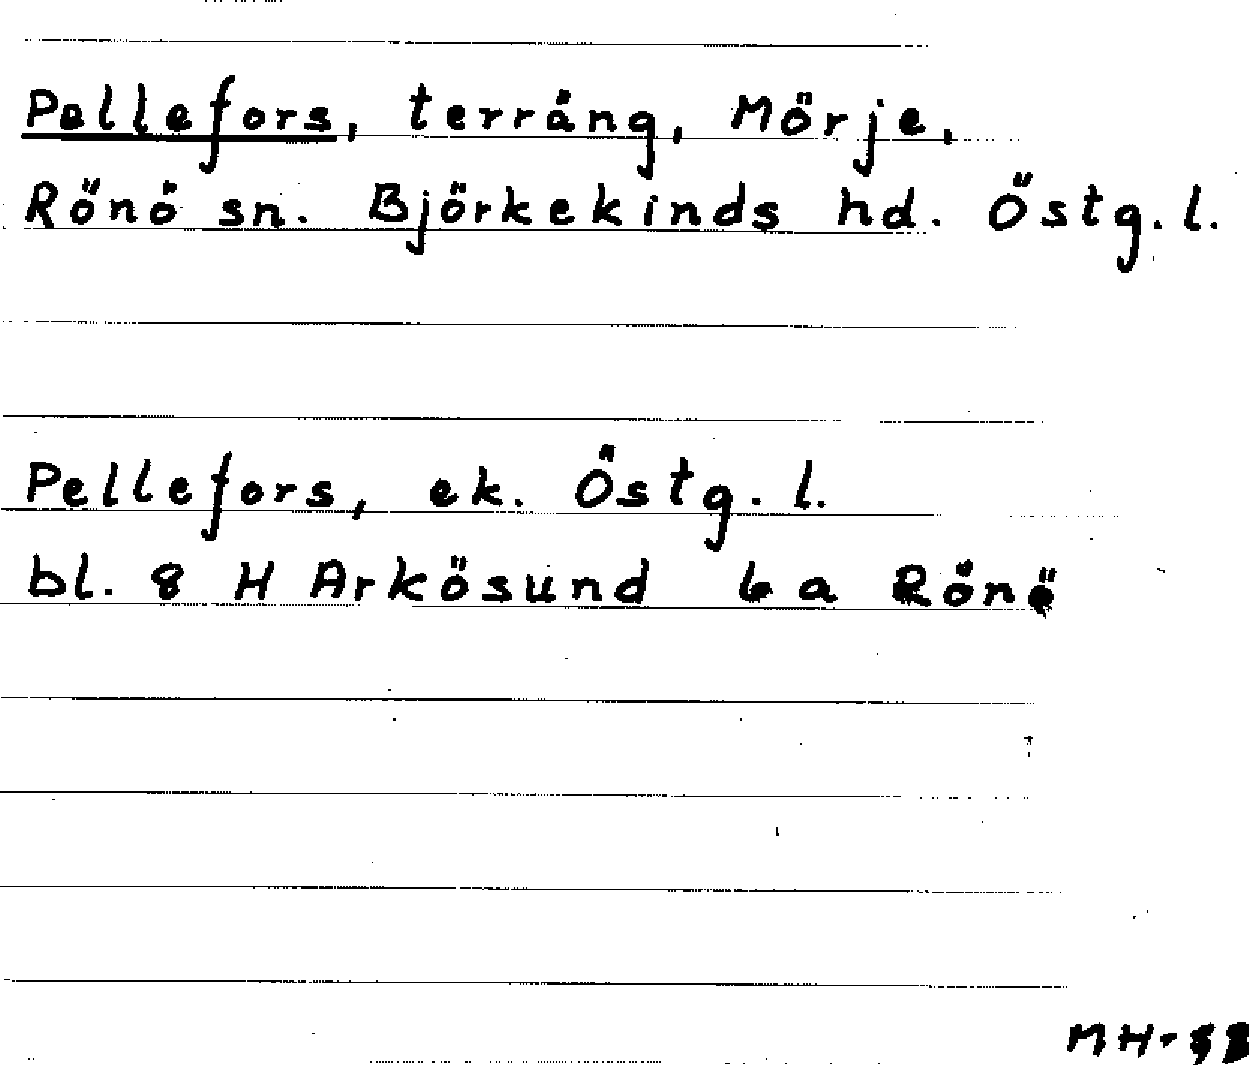 Pellefors, terräng, Mörje,
Rönö sn. Björkekinds hd. Östg. l.
Pellefors, ek. Östg. l.
bl. 8 H Arkösund 6 a Rönö